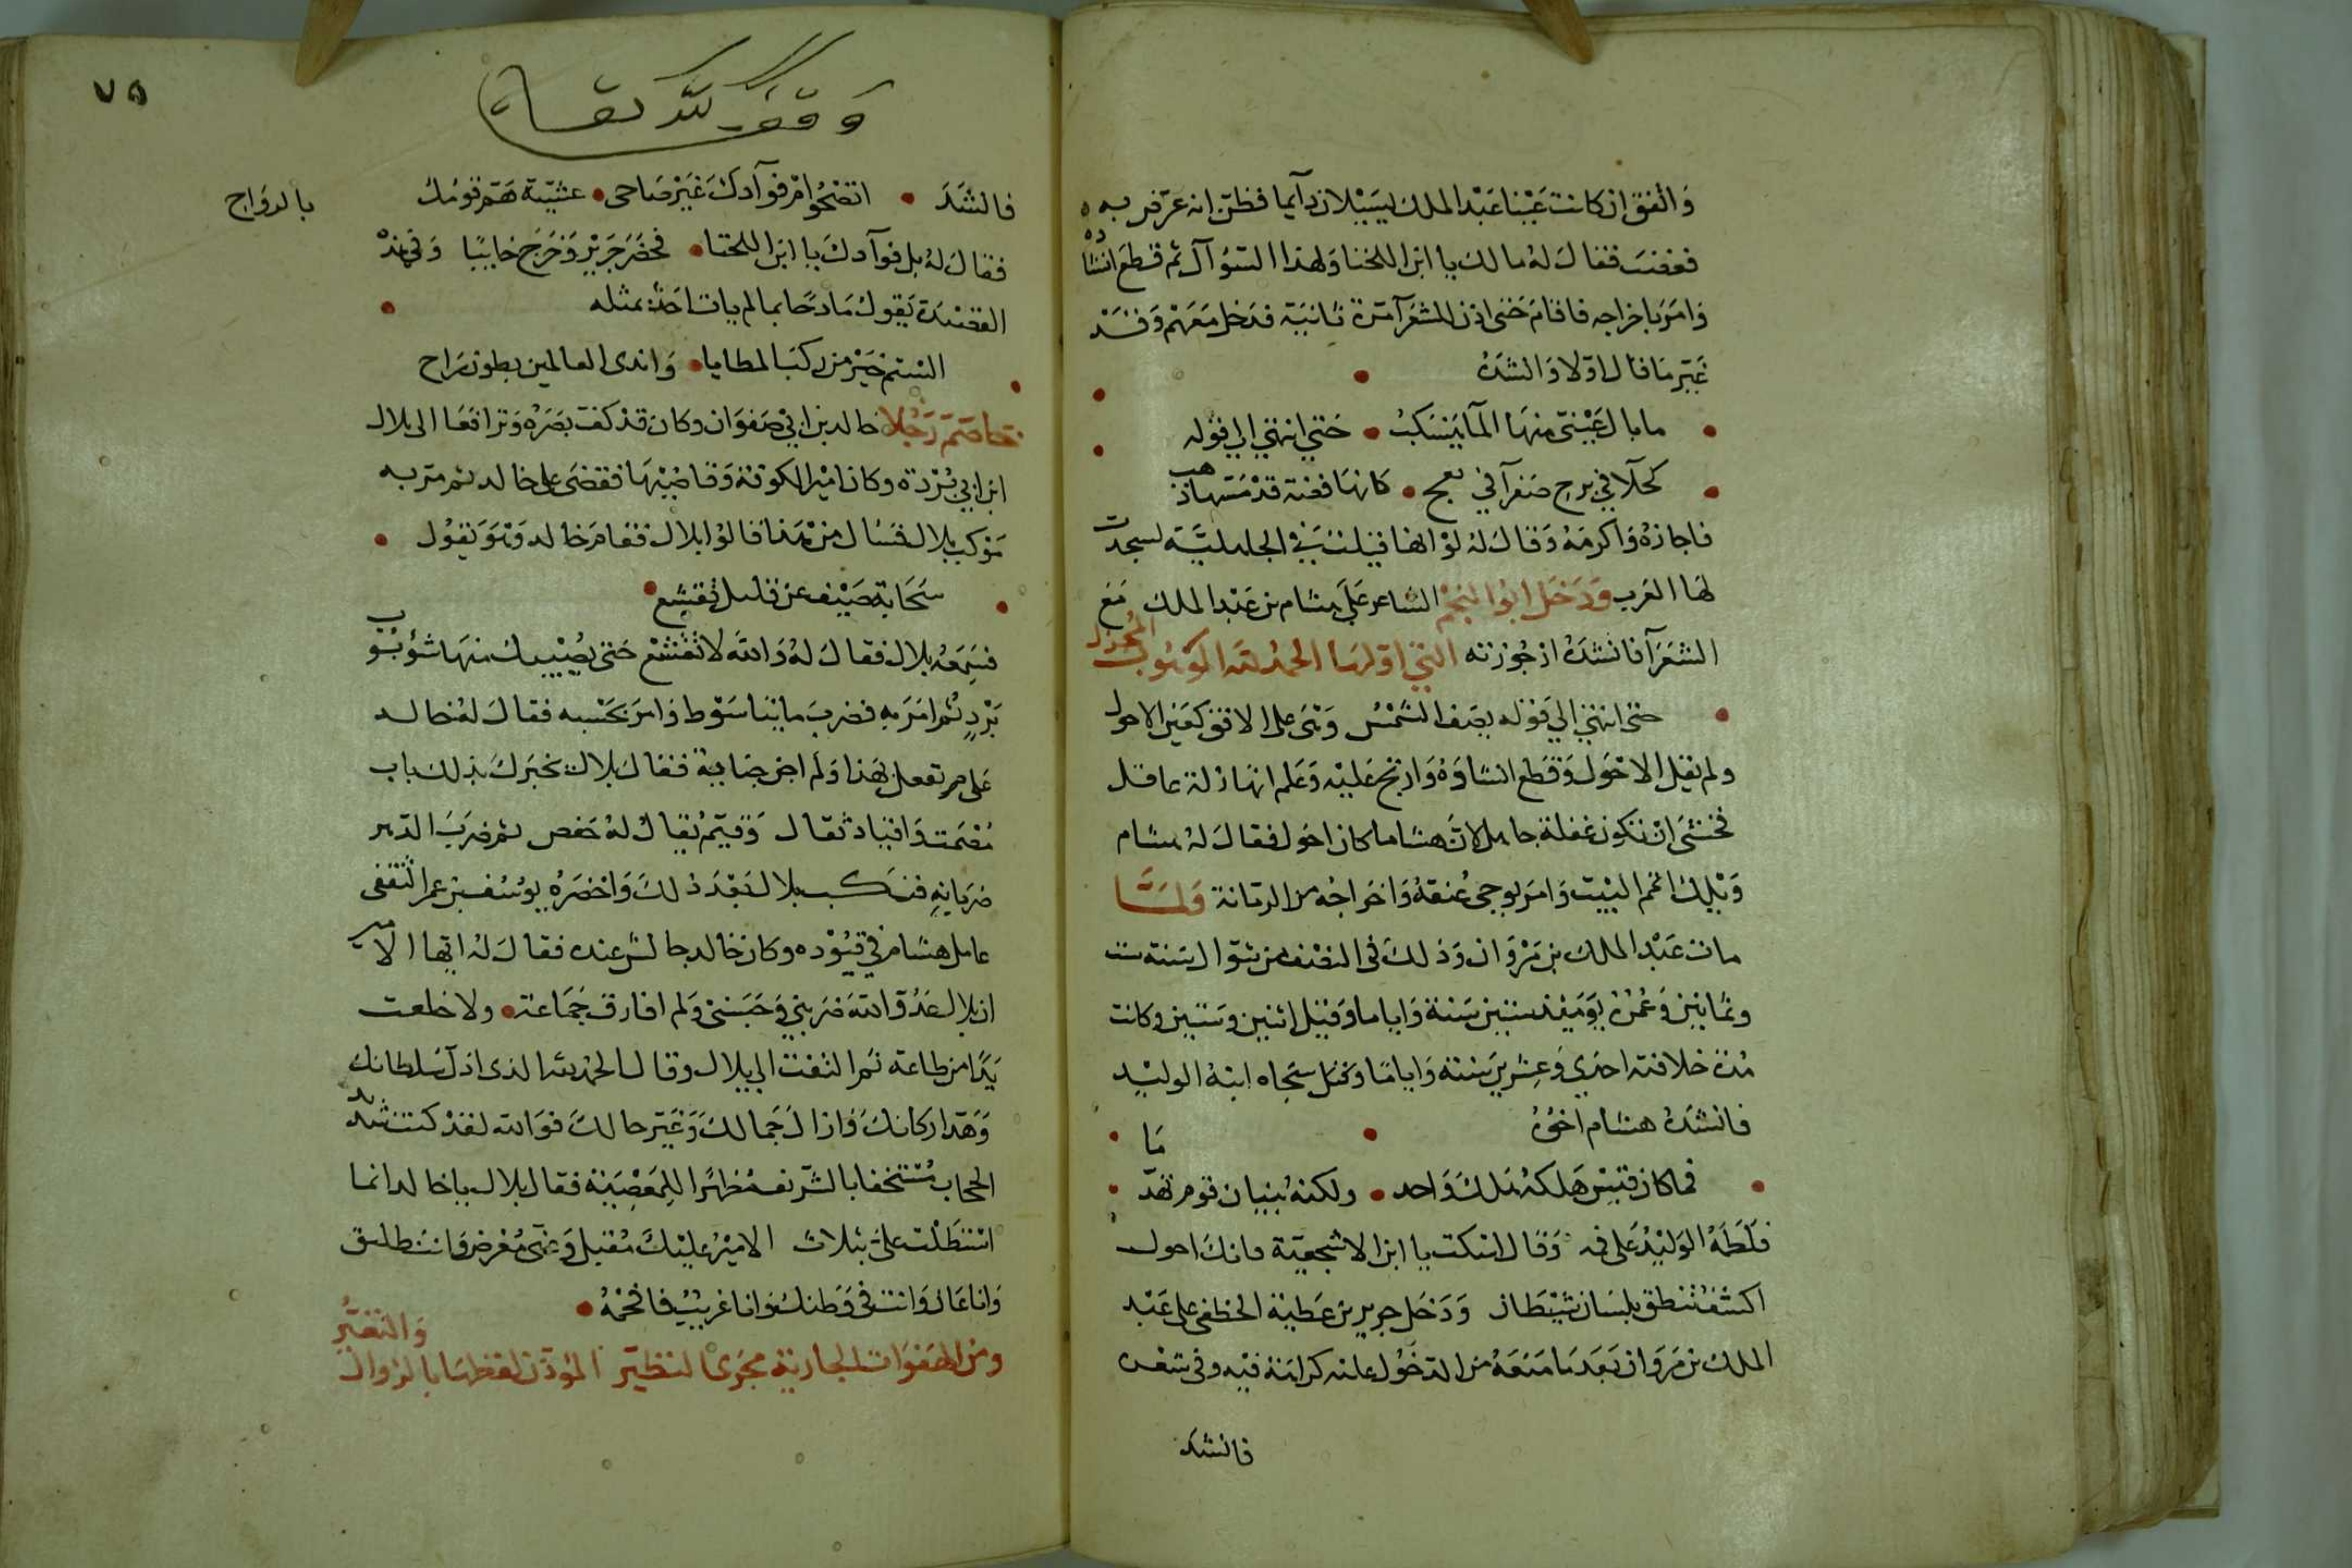 وَاتْفق ان كانت عَيْنا عَبْد الملك يسيلان دآيما فظن انه عرّض به
فغضب فقال لهُ مالك يا ابن اللخنا وَلهذا السّؤآل ثم قطع انشاده
وَامَرَ باخراجه فاقامَ حَتى اذن للشعرآ مَرة ثانيَة فدخل مَعَهمْ وَقدْ
غَيّر مَا قال اوّلا وَانشدَهُ
ما بال عَيْنيَ منهَا المآ يَنسَكبُ • حَتي انتهَي الي قوْله
كحلآ في برج صَفرآ في نعج • كانهَا فضة قدْ مَسّهَا ذهب
فاجازهُ وَاكرمَهُ وَقالَ لهُ لوْ انها قيلت في الجاهليَّة لسجدت
لهَا العَرب وَدَخَل ابُوا النجمْ الشاعر عَلَى هشام بن عَبْد الملك مَع
الشعَرآ فانشدَهُ ارْجُوزته التي اوّلهَا الحمدُ للّه الوَهُوب المُجْزل
حتى انتهي الي قوْله يصَف الشمْسُ وَهْيَ على الافق كعَين الاحول
ولم يقل الاحْوَل وَقطَع انشاوَهُ وَارتج عَليْه وَعَلم انهَا زلة عاقل
فخشيَ انْ تكون غفلة جاهل لانّ هشاما كان احَول فقالَ لهُ هشام
وَيْلك اتمم البيْت وَامَر بوجي عُنقهُ وَاخرَاجُه من الرّمانة وَلمَّا
مات عَبْد الملك بن مَرْوَان وَذلكَ في النصْف من شوّال سَنة ست
وثمانين وَعُمْرُه يَوْمَيْذ ستين سَنة وَاياما وَقيل اثنين وَستين وكانت
مُدة خلافته احدَي وَعِشرين سَنة وَايامًا وَتمثل سجاه ابنهُ الوليْد
فانشدَهُ هشام اخُوُهُ
فما كان قيْس هَلكهُ هَلكَ وَاحد • ولكنهُ بنيان قوم تهَدّمَا
فلَطَمَهُ الوَليْدُ عَلى فمه وَقال اسْكت يا ابن الاشجعيّة فانكَ احول
اكشف تنطق بلسَان شيْطَان وَدَخَل جرير بن عَطيَة الخطفي على عَبْد
الملك بن مَروَان بَعَد مَا منَعَهُ من الدّخُول عليه كرامَة فيه وفي شعره
فانشد
وَقف للّه تعالى
٧٥
فانشَدَ • اتصْحُوا امْ فوآدكَ غَيْرُ صَاحى • عشيّة هَمّ قومُك بالروَاح
فقالَ لهُ بل فوآدكَ يا ابن اللخنا • فحصَرَ جَريْر وَخَرَجَ خايبًا وَفي هذهْ
القصيْدَة يَقول مَادحًا بما لم يات احَدٌ بمثله
الستمْ خيْر من ركبَ المطايا • وَاندى العالمين بطون رَاح
تخاصَمَ رَجُلا خالد بن ابي صَفوَان وكان قدْ كفّ بَصَرَهُ وَترافعَا الى بلال
ابن ابي بُرْدة وكان اميْر الكوفة وَقاضيْهَا فقضى على خالد ثم مرّ به
مَوْكب بلال فسَال منْ هَذا قالوُا بلال فقامَ خالد وَهْوَ يَقول
سَحَابة صَيْف عن قليل تقشع
فسَمعَهُ بلال فقالَ لهُ وَاللّه لا تقشعْ حَتى يُصيبك منهَا شؤبُوب
بَرْد ثم امَرَ به فضربَ مايتا سَوْط وَامَرَ بحَبْسه فقالَ لهُ خالد
عَلى م تفعل بي هَذا وَلم اجْن جنايَة فقالَ بلال يخبرَكَ بذلك باب
مُصْمَت وَاقيَاد ثقال وَقيّم يُقال لهُ حَفص ثم ضربَ الدّهر
ضرباته فنكب بلال بَعْدَ ذلكَ وَاحْضَرُه يوْسُف بن عمر الثقفى
عامل هشام في قيُوْده وكان خالد جالسٌ عنده فقالَ لهُ ايّها الامير
ان بلال عَدُوّ اللّه ضرَبَني وَحَبَسَني وَلم افارق جَمَاعَة • ولا خلعت
يَدًا من طاعَة ثم التفت الى بلال وقال الحمد للّه الذي اذلّ سُلطانك
وَهَدّ اركانكَ وَازالَ جَمالكَ وَغيّر حالكَ فوَاللّه لقدْ كنت شديد
الحجاب مُستخفا بالشّريف مُظهرًا للمَعْصِيَة فقال بلال يا خالد انما
استَطَلت عليّ بثلاث الاميْرُ عليْكَ مُقبل وَعَنى مُعْرض وَانتَ طليق
وَانا عَان وَانت في وَطنك وَانا غريب فافحَمُهُ •
ومن الهفوَات الجاريَة مجرَى التطيّر المؤذن لفظهَا بالزوال وَالتغيّر